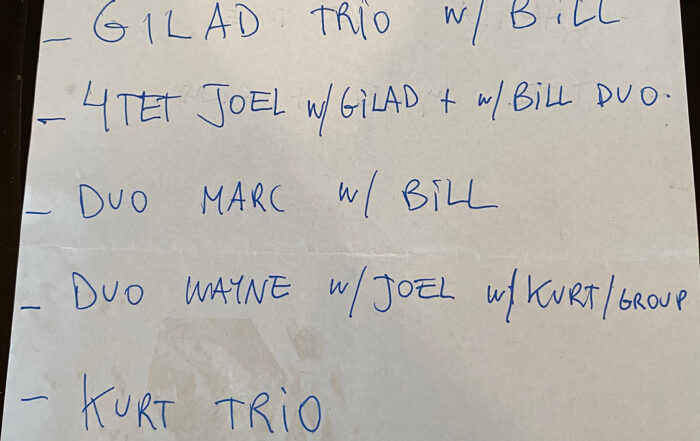 - GILAD TRIO w/ BiLL
- 4TET JOEL w/ GiLAD + w/ BiLL DUO.
- DUO MARC w/ BiLL
- DUO WAYNE w/ JOEL w/ KURT/GROUP
- KURT TRiO